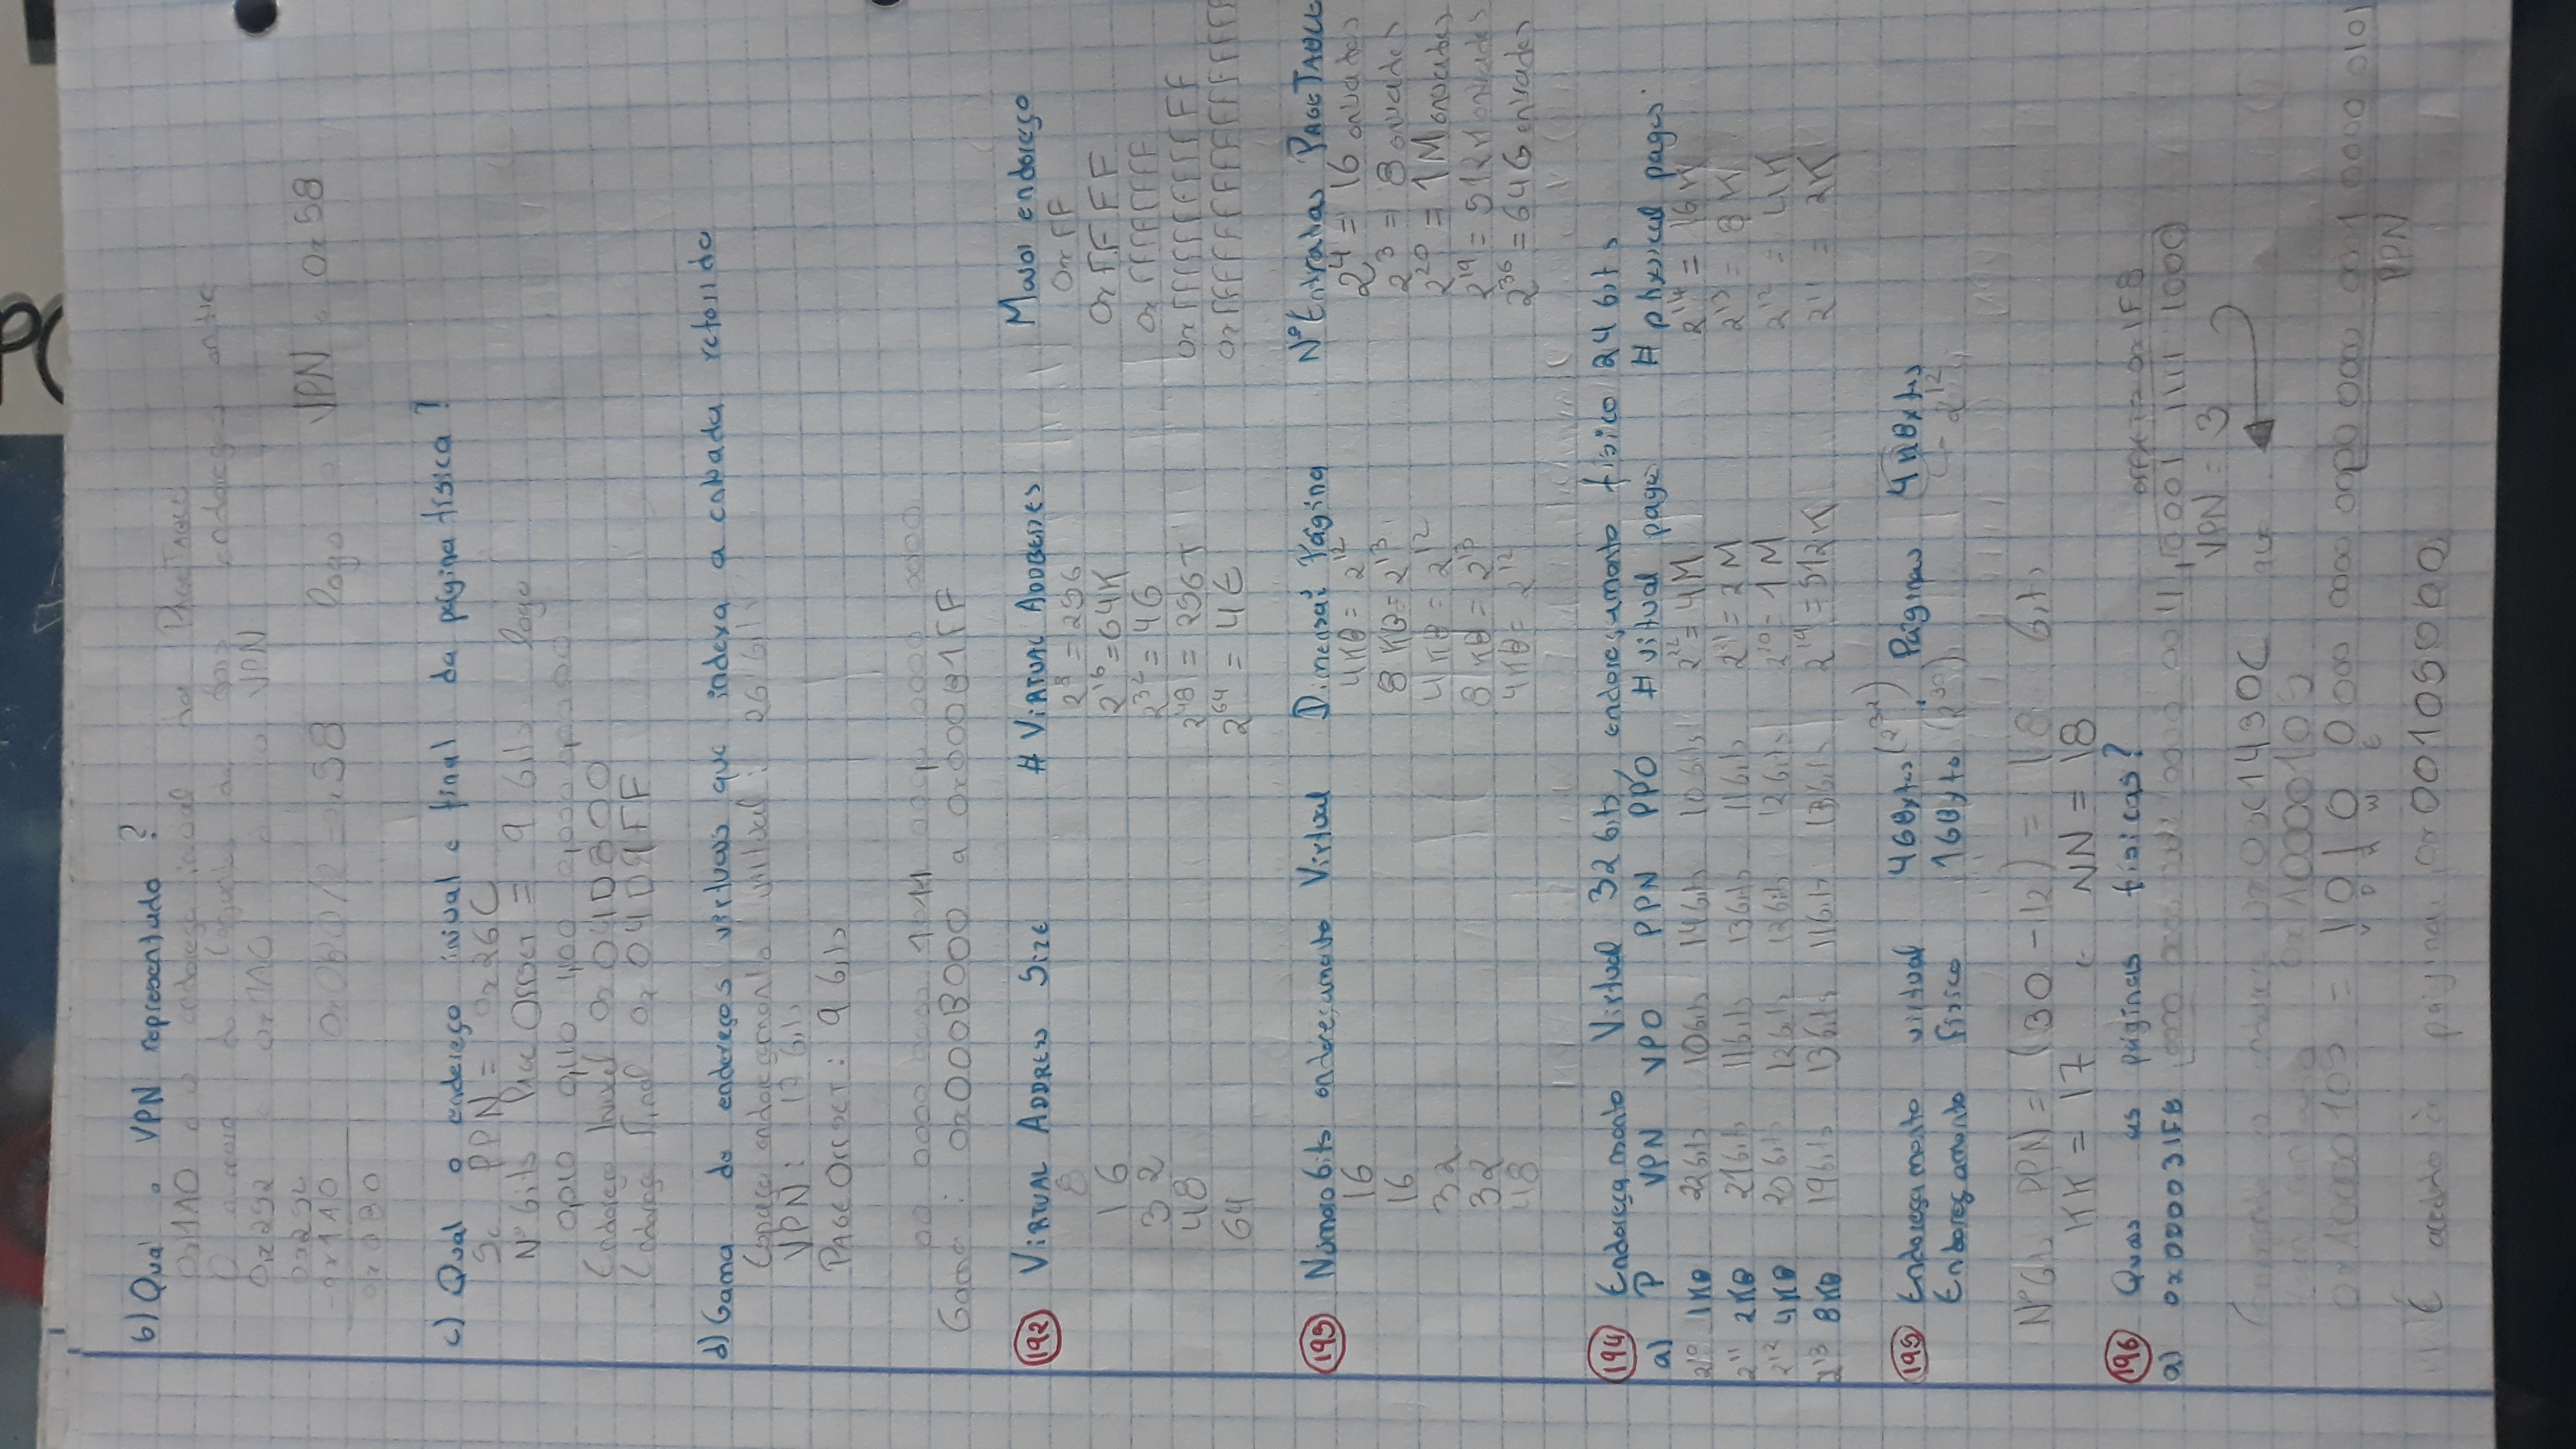 b) Qual o VPN representado?
0x1A0 é o endereço inicial da PAGETABLE
endereços entre
0x292 0x1A0 é o VPN
-0x1A0 0x0B0/2 = 0x58 logo o VPN é 0x58
0x0B0
c) Qual o endereço inicial e final da página física?
Se PPN = 0x26C
Nº bits PAGE OFFSET = 9 bits logo
0010 0110 1100 0000 00000
Endereço Inicial 0x04D800
Endereço Final 0x04D9FF
d) Gama de endereços virtuais que indexa a entrada referida
Espaço endereçamento virtual: 26 bits
VPN: 17 bits
PAGE OFFSET: 9 bits
00 0000 0000 1011 0000 0000 0000
Gama: 0x000B000 a 0x000B1FF
192 VIRTUAL ADDRESS SIZE # VIRTUAL ADDRESSES Maior endereço
8 2^8 = 256 0xFF
16 2^16 = 64K 0xFFFF
32 2^32 = 4G 0xFFFFFFFF
48 2^48 = 256T 0xFFFFFFFFFFFF
64 2^64 = 4E 0xFFFFFFFFFFFFFFFF
193 Número bits endereçamento Virtual Dimensão Página Nº Entradas PAGETABLE
16 4KB = 2^12 2^4 = 16 entradas
16 8KB = 2^13 2^3 = 8 entradas
32 4KB = 2^12 2^20 = 1M entradas
32 8KB = 2^13 2^19 = 512K entradas
48 4KB = 2^12 2^36 = 64G entradas
194 Endereçamento Virtual 32 bits, endereçamento físico 24 bits
a) P VPN VPO PPN PPO # virtual page # physical pages
2^10 1KB 22bits 10bits 14bits 10bits 2^22 = 4M 2^14 = 16K
2^11 2KB 21bits 11bits 13bits 11bits 2^21 = 2M 2^13 = 8K
2^12 4KB 20bits 12bits 12bits 12bits 2^20 = 1M 2^12 = 4K
2^13 8KB 19bits 13bits 11bits 13bits 2^19 = 512K 2^11 = 2K
195 Endereçamento virtual 4GBytes (2^32). Páginas 4KBytes
Endereçamento físico 1GByte (2^30), 2^12
Nº bits PPN = (30 - 12) = 18 bits
KK = 17 e NN = 18
196 Quais as páginas físicas?
offset = 0x1F8
a) 0x000031F8 0000 0000 0000 0000 0011, 0001 1111 1000
VPN = 3
0x0C1430C que
0xA0000105
0xA0000105 = 1010 0000 0000 0000 0000 0001 0000 0101
V D A W E
PPN
É acedido à página 0x00105000